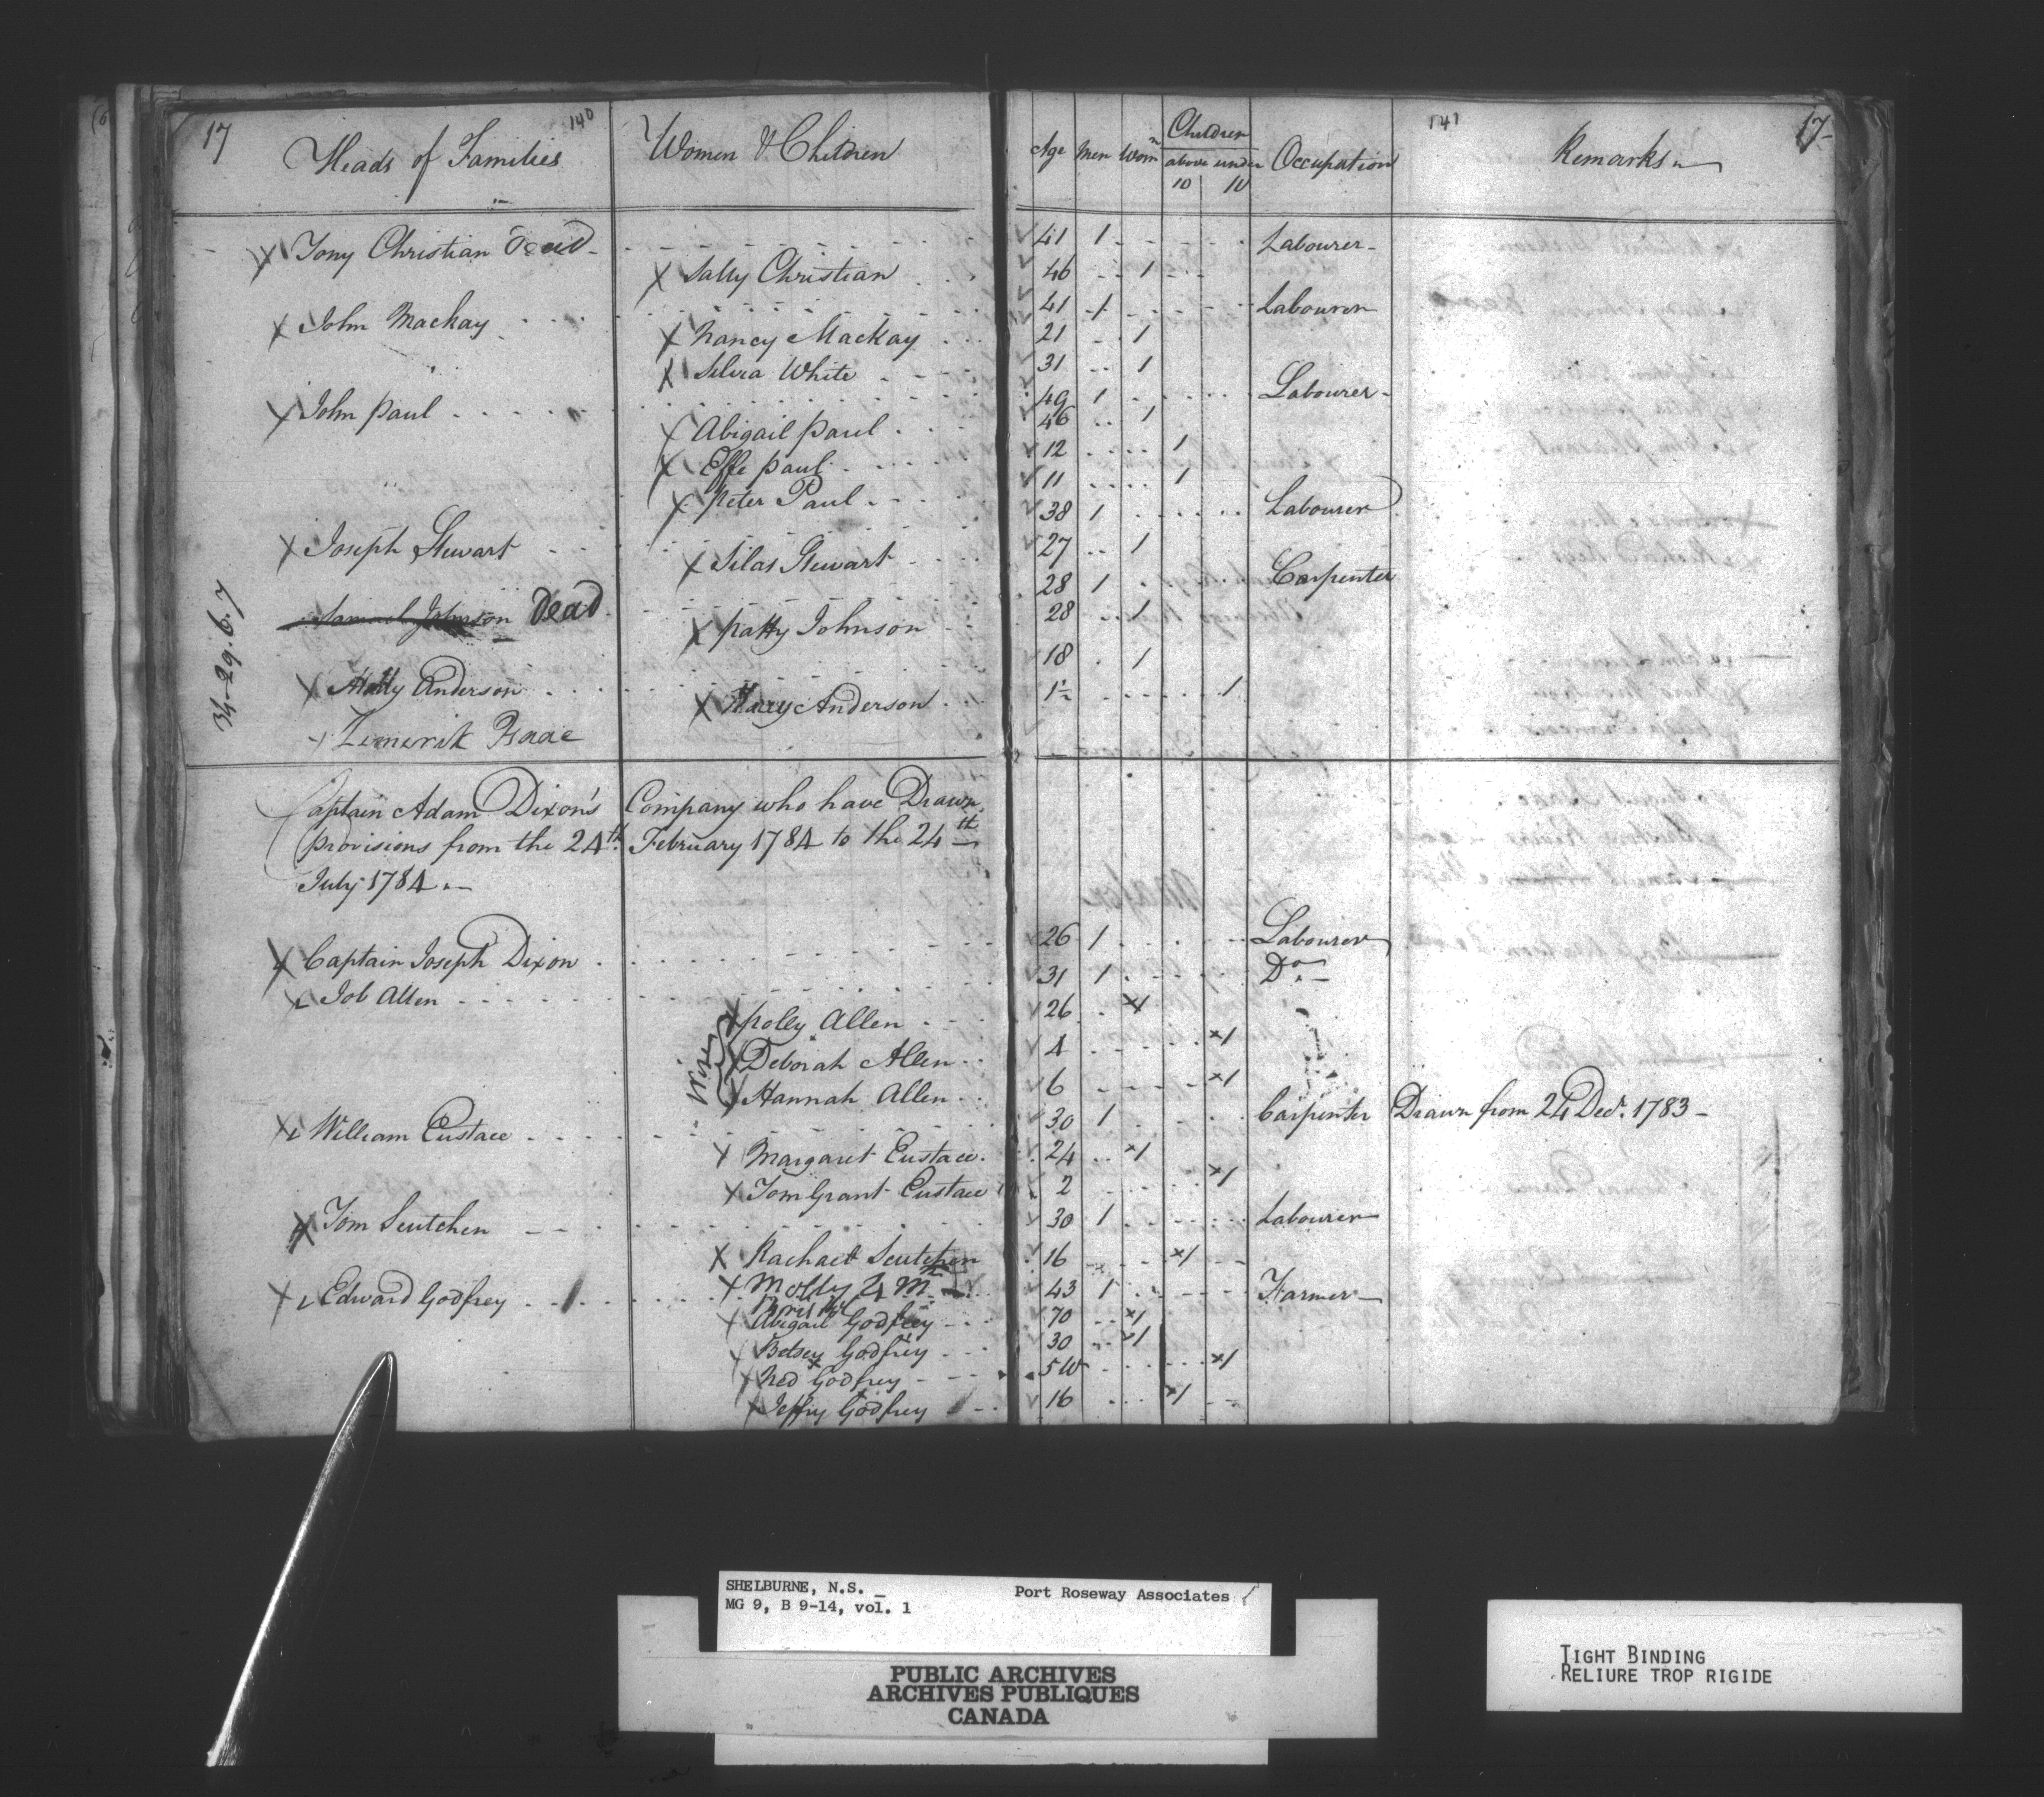 17 140 141 17
Heads of Families Women & Children Age Men Womn Children above 10 under 10 Occupation Remarks
Tony Christian Dead 41 1 Labourer
Sally Christian 46 1
John Mackay 41 1 Labourer
Nancy Mackay 21 1
Silvia White 31 1
John Paul 49 1 Labourer
Abigail Paul 46 1
Effe Paul 12 1
Peter Paul 11 1
Joseph Stewart 38 1 Labourer
Silas Stewart 27 1
Samuel Johnson Dead 28 1 Carpenter
Patty Johnson 28 1
Anderson 18 1
Anderson 1½ 1
Limerik Isaac
34-29.6.7
Captain Adam Dixon's Company who have Drawn
provisions from the 24th February 1784 to the 24th
July 1784
Captain Joseph Dixon 26 1 Labourer
Job Allen 31 1 Do
Polly Allen 26 1
Deborah Allen 4 1
Hannah Allen 6 1
William Eustace 30 1 Carpenter Drawn from 24 Decr. 1783
Margaret Eustace 24 1
Tom Grant Eustace 2 1
Tom Scutchen 30 1 Labourer
Rachael Scutchen 16 1
Molly 4 M
Edward Godfrey 43 1 Farmer
Abigail Godfrey 70 1
Betsey Godfrey 30 1
Ned Godfrey 5 W 1
Jeffry Godfrey 16 1
SHELBURNE, N.S. Port Roseway Associates
MG 9, B 9-14, vol. 1
PUBLIC ARCHIVES
ARCHIVES PUBLIQUES
CANADA
TIGHT BINDING
RELIURE TROP RIGIDE